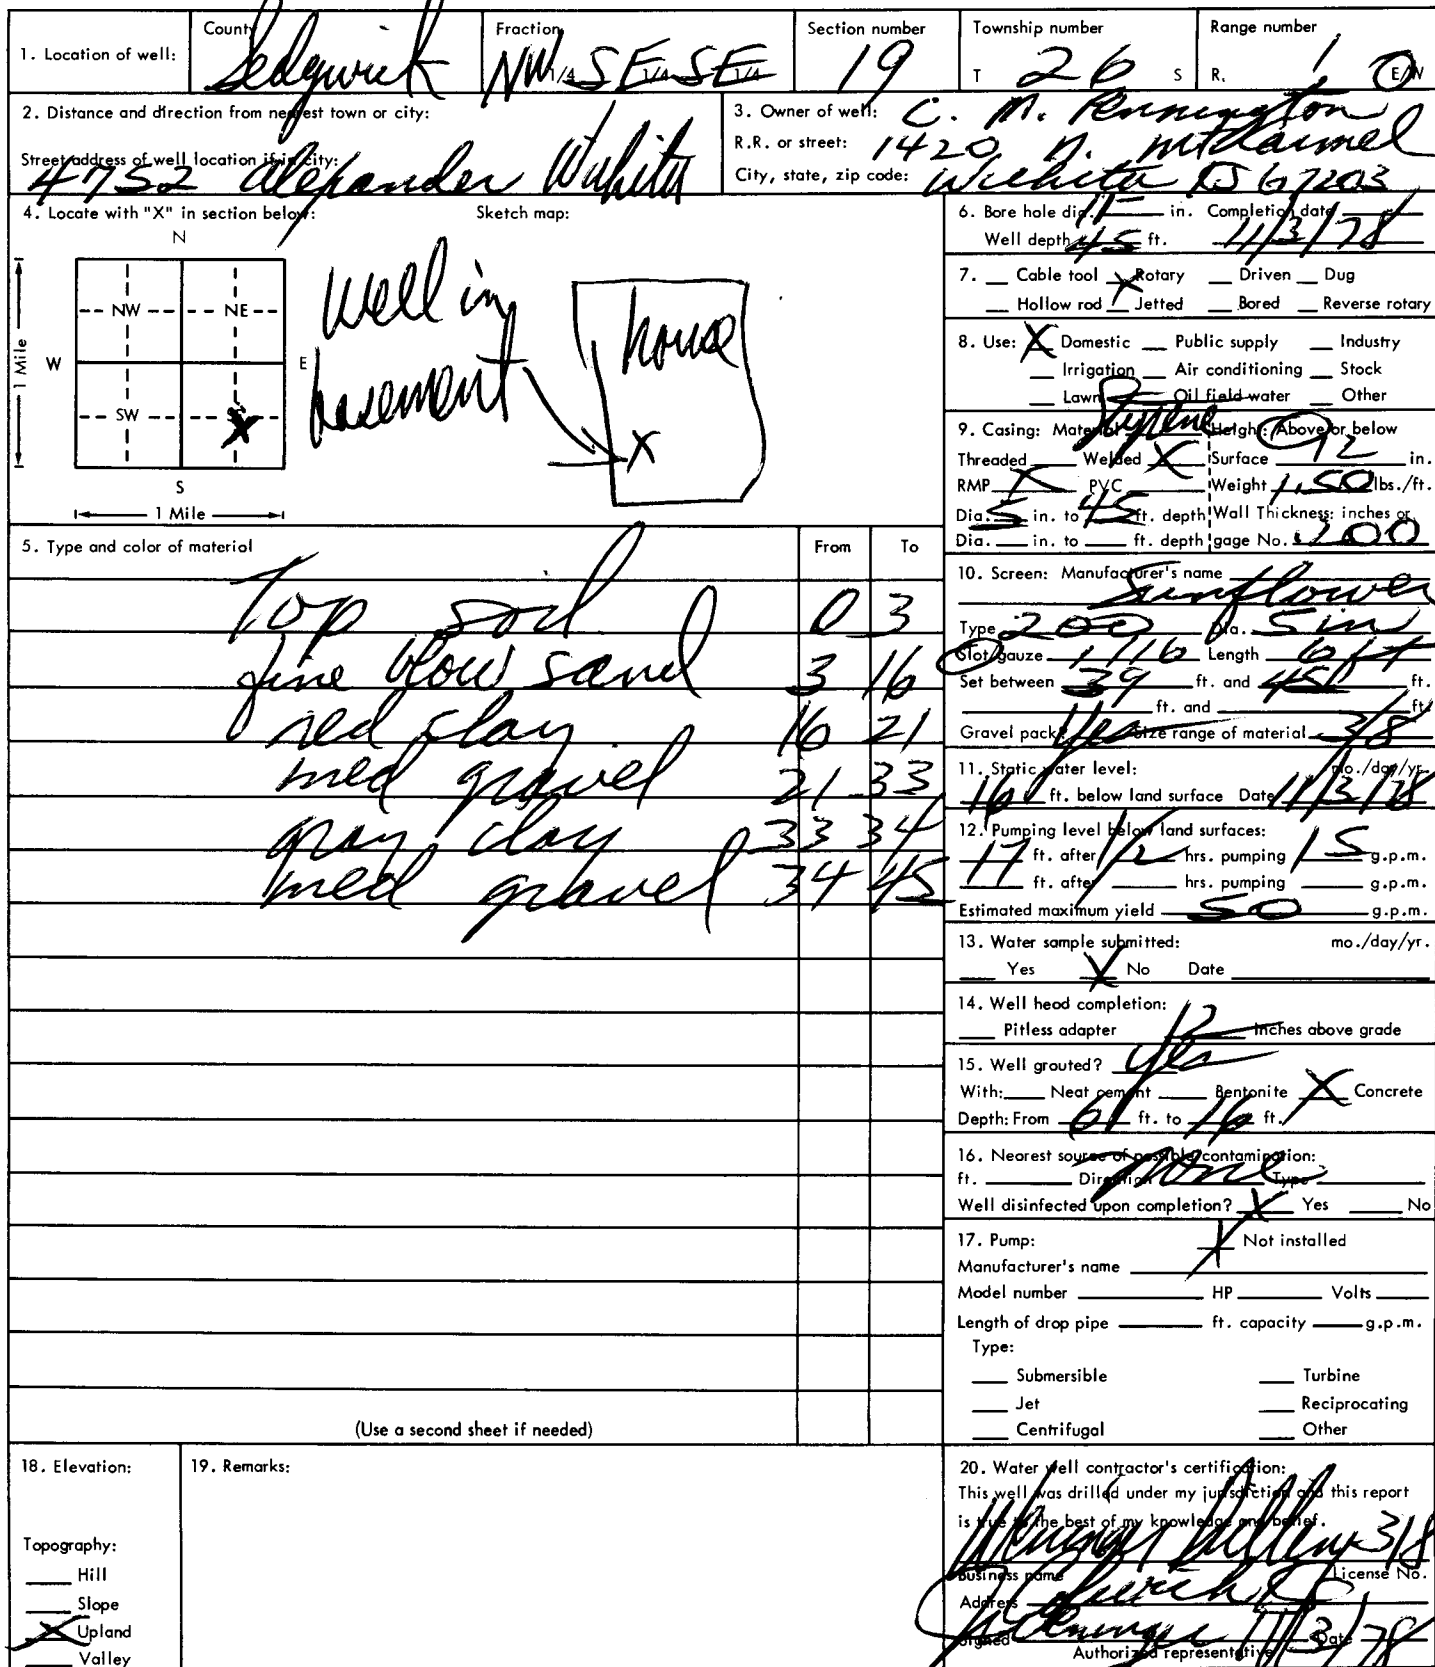 1. Location of well: County Sedgwick Fraction NW 1/4 SE 1/4 SE 1/4 Section number 19 Township number T 26 S Range number R. 1 E/W
2. Distance and direction from nearest town or city:
Street address of well location if in city:
4752 Alexander Wichita
3. Owner of well: C. M. Pennington
R.R. or street: 1420 N.
City, state, zip code: Wichita KS 67203
4. Locate with "X" in section below: Sketch map:
N
NW NE
W E
SW X
S
1 Mile
1 Mile
well in
basement
house
X
5. Type and color of material From To
Top soil 0 3
fine blow sand 3 16
red clay 16 21
med gravel 21 33
gray clay 33 34
med gravel 34 45
(Use a second sheet if needed)
6. Bore hole dia. 11 in. Completion date
Well depth 45 ft. 11/3/78
7. Cable tool X Rotary Driven Dug
Hollow rod Jetted Bored Reverse rotary
8. Use: X Domestic Public supply Industry
Irrigation Air conditioning Stock
Lawn Oil field water Other
9. Casing: Material Styrene Height: Above or below
Threaded Welded X Surface 12 in.
RMP X PVC Weight 1.50 lbs./ft.
Dia. 5 in. to 45 ft. depth Wall Thickness: inches or
Dia. in. to ft. depth gage No. .200
10. Screen: Manufacturer's name
Sunflower
Type 200 Dia. 5 in
Slot/gauze 1/16 Length 6 ft
Set between 39 ft. and 45 ft.
ft. and ft.
Gravel pack? Yes Size range of material 3/8
11. Static water level: mo./day/yr.
16 ft. below land surface Date 11/3/78
12. Pumping level below land surfaces:
17 ft. after 1/2 hrs. pumping 15 g.p.m.
ft. after hrs. pumping g.p.m.
Estimated maximum yield 50 g.p.m.
13. Water sample submitted: mo./day/yr.
Yes X No Date
14. Well head completion:
Pitless adapter 12 Inches above grade
15. Well grouted? yes
With: Neat cement Bentonite X Concrete
Depth: From 6 ft. to 16 ft.
16. Nearest source of possible contamination:
ft. Direction none Type
Well disinfected upon completion? X Yes No
17. Pump: X Not installed
Manufacturer's name
Model number HP Volts
Length of drop pipe ft. capacity g.p.m.
Type:
Submersible Turbine
Jet Reciprocating
Centrifugal Other
18. Elevation:
Topography:
Hill
Slope
X Upland
Valley
19. Remarks:
20. Water well contractor's certification:
This well was drilled under my jurisdiction and this report
is true to the best of my knowledge and belief.
Weninger Drilling 318
Business name License No.
Address
Signed Weninger Date 11/3/78
Authorized representative